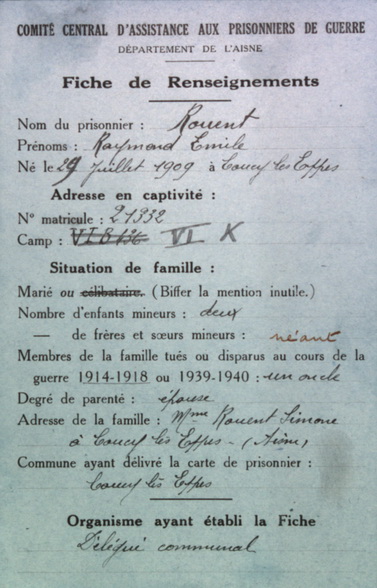 COMITÉ CENTRAL D'ASSISTANCE AUX PRISONNIERS DE GUERRE
DÉPARTEMENT DE L'AISNE
Fiche de Renseignements
Nom du prisonnier : Rouent
Prénoms : Raymond Emile
Né le 29 Juillet 1909 à Coucy les Eppes
Adresse en captivité :
N° matricule : 21932
Camp : VI K
Situation de famille :
Marié ou célibataire. (Biffer la mention inutile.)
Nombre d'enfants mineurs : deux
— de frères et sœurs mineurs : néant
Membres de la famille tués ou disparus au cours de la
guerre 1914-1918 ou 1939-1940 : un oncle
Degré de parenté : épouse
Adresse de la famille : Mme Rouent Simone
à Coucy les Eppes - (Aisne)
Commune ayant délivré la carte de prisonnier :
Coucy les Eppes
Organisme ayant établi la Fiche
Délégué communal